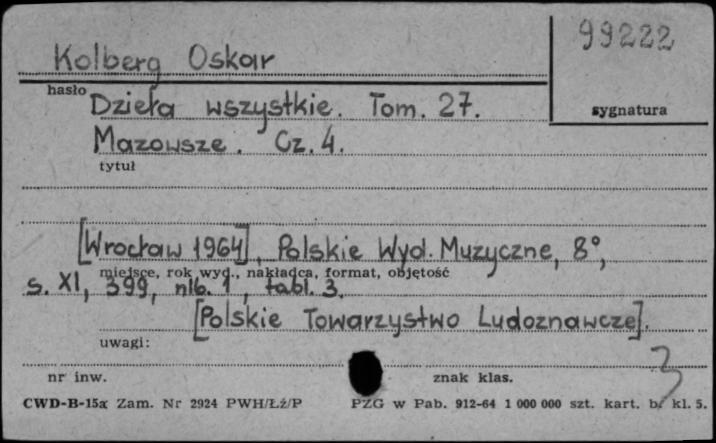 Kolberg Oskar
99222
hasło
Dzieła wszystkie. Tom. 27.
sygnatura
Mazowsze. Cz. 4.
tytuł
[Wrocław 1964], Polskie Wyd. Muzyczne, 8°,
miejsce, rok wyd., nakładca, format, objętość
s. XI, 399, nlb. 1, tabl. 3.
[Polskie Towarzystwo Ludoznawcze].
uwagi:
3
nr inw.
znak klas.
CWD-B-15a Zam. Nr 2924 PWH/Łź/P PZG w Pab. 912-64 1 000 000 szt. kart. b. kl. 5.